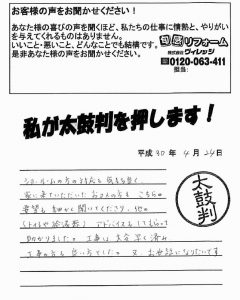 お客様の声をお聞かせください！
あなた様の喜びの声を聞くほど、私たちの仕事に情熱と、やりがい
を与えてくれるものはありません。
いいこと・悪いこと、どんなことでも結構です。
是非あなた様の声をお聞かせください。
リフォーム
株式会社ヴィレッジ
0120-063-411
担当:
私が太鼓判を押します！
平成30年4月24日
太鼓判
ショールームの方の
家に来ていただいた
要望も細かく聞いてくださり、他の
アドバイスもしてもらって
助かりました。工事は大分早く済み
工事の方も 又、お世話になりたいです